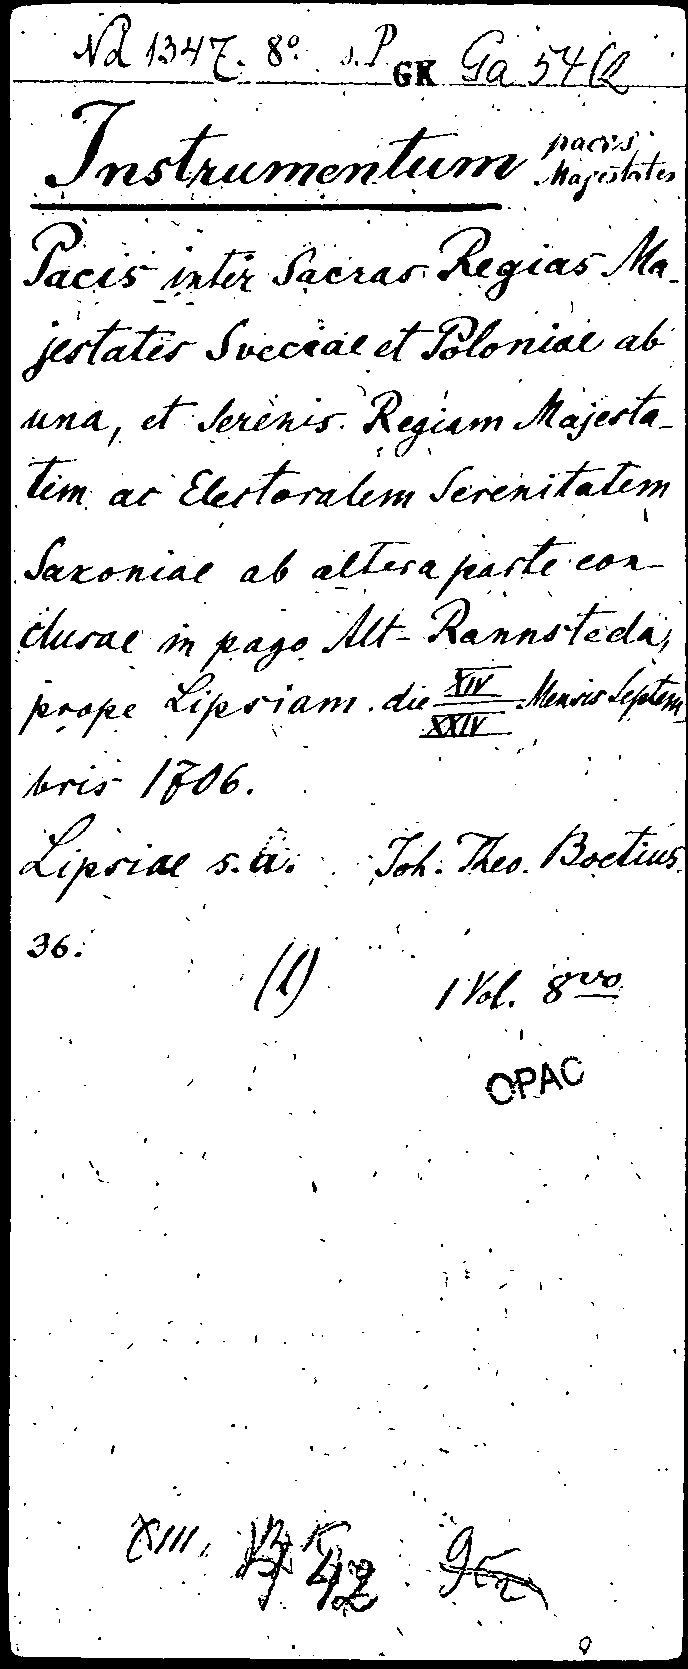 Nd 1347. 8° s. P GK Ga 54
Instrumentum pacis
Majestates
Pacis inter Sacras Regias Ma-
jestates Sveciae et Poloniae ab
una, et Serenis. Regiam Majesta-
tem ac Electoralem Serenitatem
Saxoniae ab altera parte con-
clusae in pago Alt-Rannsteda,
prope Lipsiam die XIV/XXIV Mensis Septem
bris 1706.
Lipsiae s. a. Joh. Theo. Boetius.
36.
(1) 1 Vol. 8vo
OPAC
XIII, 42